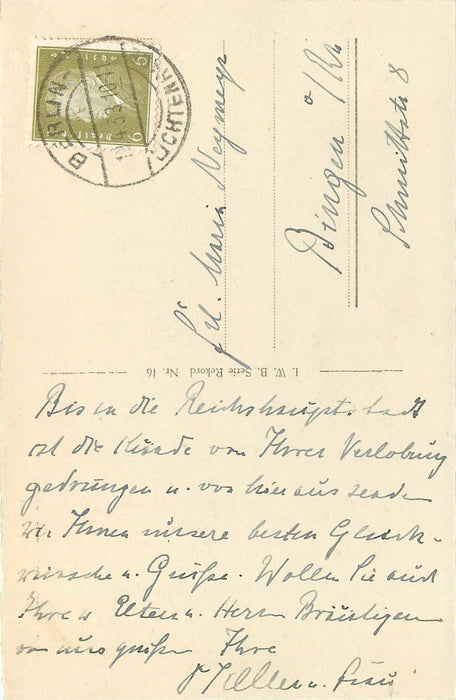 BERLIN
LICHTENRADE
6
6
Frl. Maria Neymeyer
Bingen a/Rh
Schmittstr 8
I. W. B. Serie Rekord Nr. 16
Bis in die Reichshauptstadt
ist die Kunde von Ihrer Verlobung
gedrungen u. von hier aus senden
wir Ihnen unsere besten Glück-
wünsche u. Grüße. Wollen Sie auch
Ihre Eltern u. Herrn Bräutigam
von uns grüßen Ihre
u. Frau